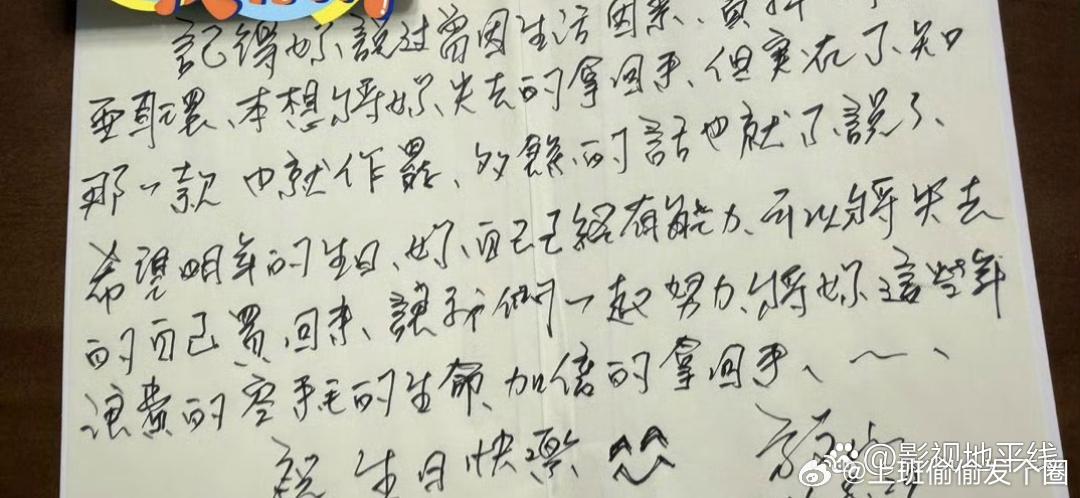 記得妳說過曾因生活因素、賣掉
耳環、本想將妳失去的拿回來、但實在不知
那一款也就作罷、多餘的話也就不說了、
希望明年的生日、妳自己已經有能力、可以將失去
的自己買回來、讓我們一起努力、將妳這些年
浪費的空耗的生命、加倍的拿回來、~、
祝 生日快樂 ^^
影视地平线
@上班偷偷发个圈